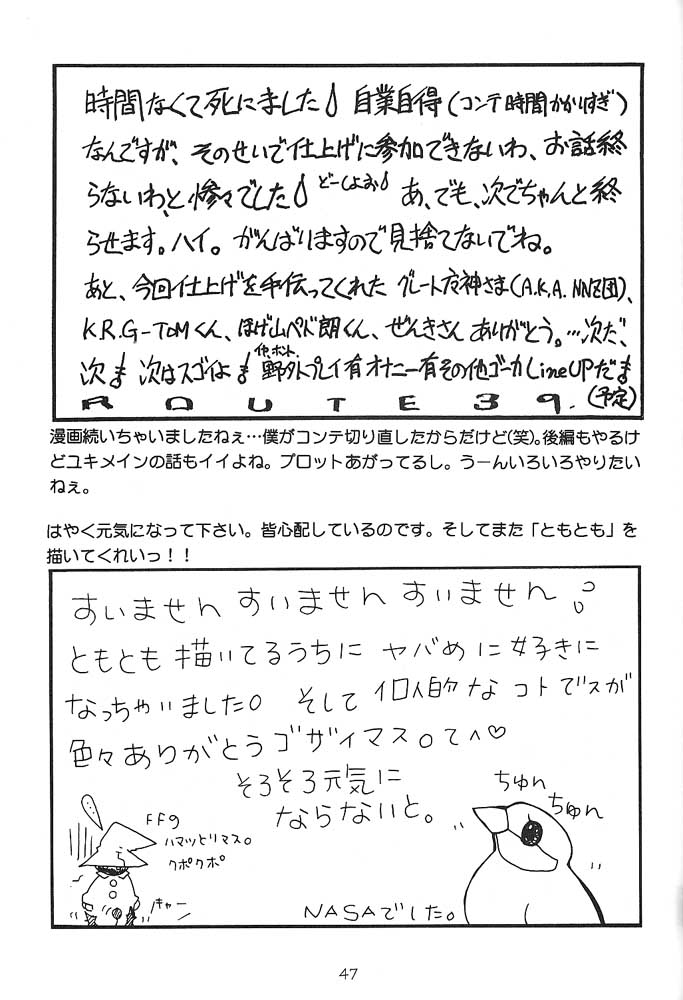 時間なくて死にました 自業自得(コンテ時間かかりすぎ)
なんですが、そのせいで仕上げに参加できないわ、お話終
らないわと、惨々でした どーしよお あ、でも、次でちゃんと終
らせます。ハイ。がんばりますので見捨てないでね。
あと、今回仕上げを手伝ってくれた グレート
さま(A.K.A. NNZ団)、
K.R.G-TOMくん、ほげ山ペド朗くん、ぜんきさん ありがとう。…次だ、
次 次はスゴイよ 野外プレイ有オナニー有その他ゴーカLineUPだ
(予定)
ROUTE39.
漫画続いちゃいましたねぇ…僕がコンテ切り直したからだけど(笑)。後編もやるけ
どユキメインの話もイイよね。プロットあがってるし。うーんいろいろやりたい
ねぇ。
はやく元気になって下さい。皆心配しているのです。そしてまた「ともとも」を
描いてくれいっ!!
すいません すいません すいません
ともとも描いてるうちに ヤバめに好きに
なっちゃいました。 そして 個人的な コトでスが
色々ありがとうゴザイマス。てへ♡
そろそろ元気に
ならないと。
ちゅん
ちゅん
FFの
ハマッとりマス。
クポクポ
キャー
NASAでした。
47